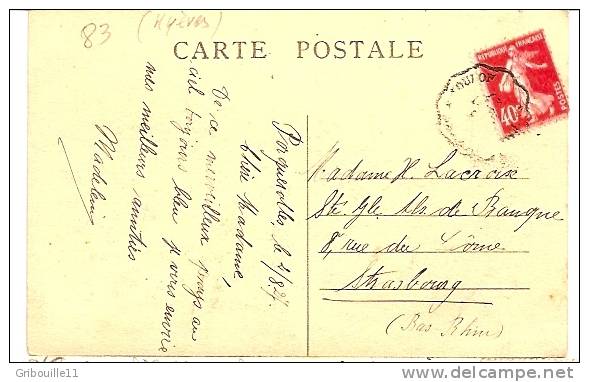 83 (Hyères)
CARTE POSTALE
RÉPUBLIQUE FRANÇAISE
POSTES
40c
TOULON
Porquerolles, le 4/8.27.
Chère Madame,
De ce merveilleux pays au
ciel toujours bleu je vous envoie
mes meilleurs amitiés
Madeleine
Madame H. Lacroix
Sté Gle Als. de Banque
8, rue du Dôme
Strasbourg
(Bas Rhin)
© Gribouille11
delcampe.net